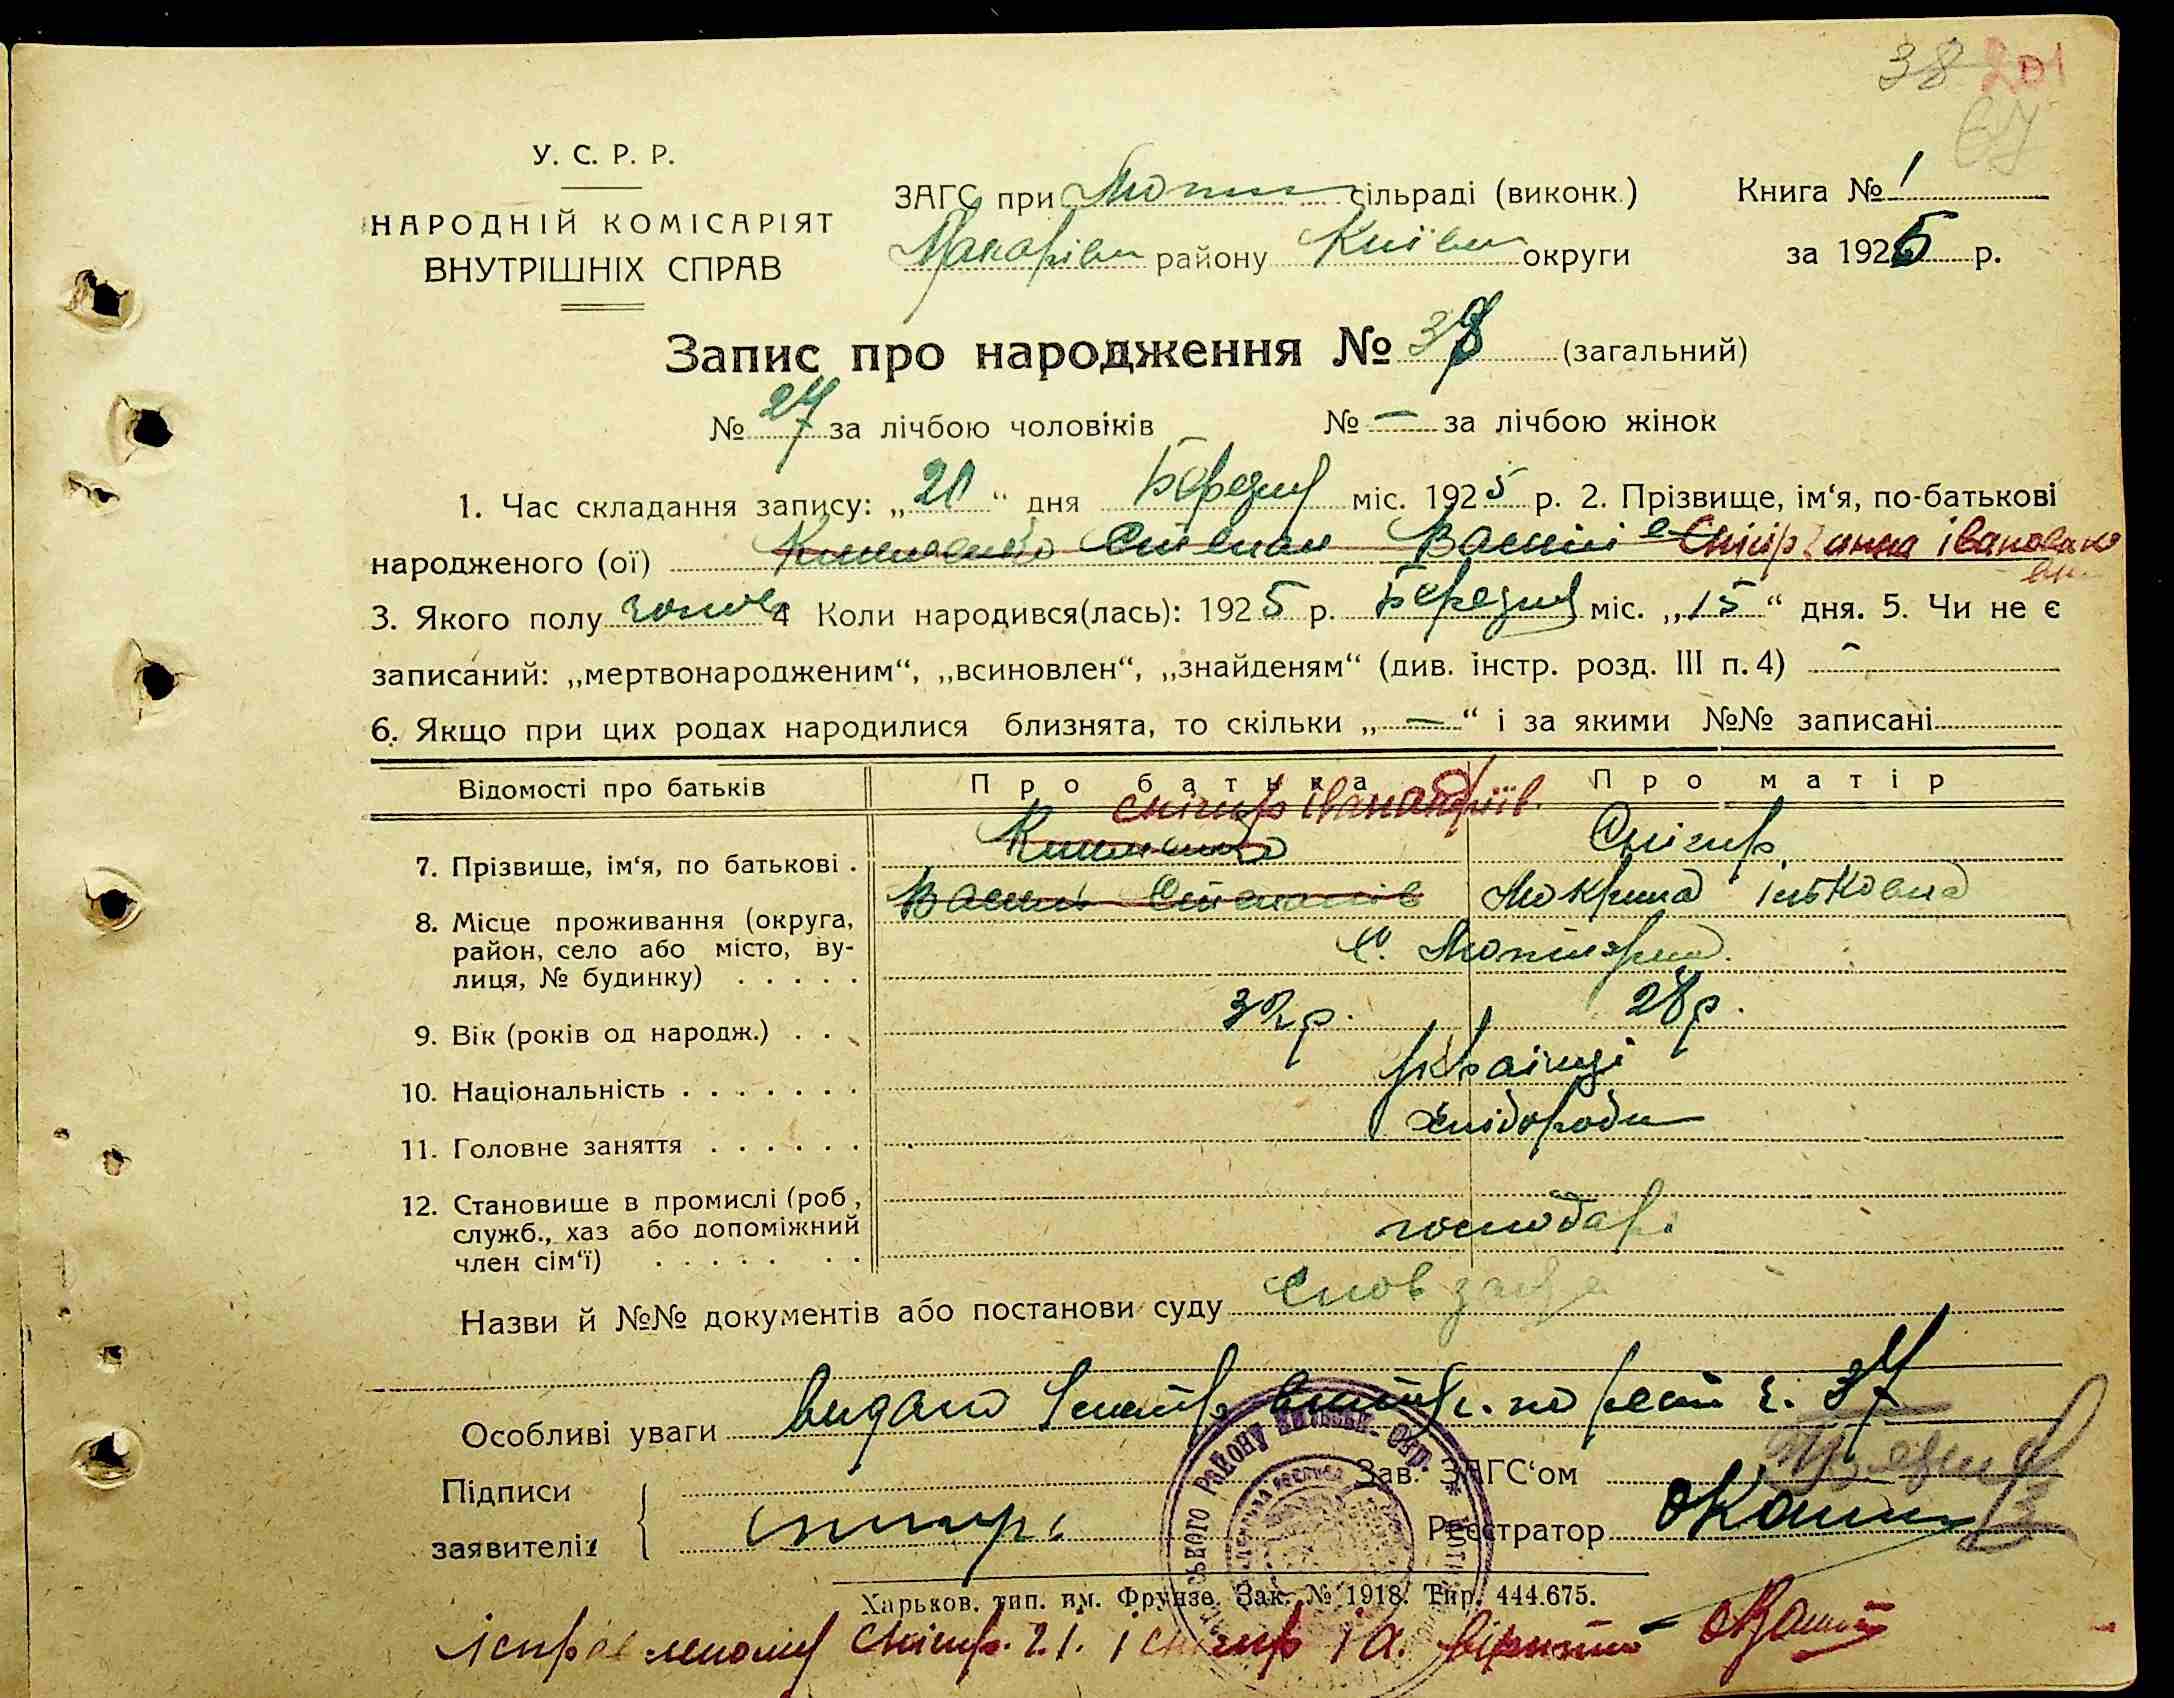 38 201
У. С. Р. Р.
НАРОДНІЙ КОМІСАРІЯТ
ВНУТРІШНІХ СПРАВ
ЗАГС при Мотиж сільраді (виконк.)
Макарівськ району Київськ округи
Книга № 1
за 1925 р.
Запис про народження № 38 (загальний)
№ 24 за лічбою чоловіків № — за лічбою жінок
1. Час складання запису: „20“ дня Березня міс. 1925 р. 2. Прізвище, ім‘я, по-батькові
народженого (ої) Степан Василів Снігир Ганна Івановна
3. Якого полу чолов 4 Коли народився(лась): 1925 р. Березня міс. „15“ дня. 5. Чи не є
записаний: „мертвонародженим“, „всиновлен“, „знайденям“ (див. інстр. розд. III п. 4) -
6. Якщо при цих родах народилися близнята, то скільки „—“ і за якими №№ записані
Відомості про батьків Про батька Про матір
Снігир Іван Андріїв.
7. Прізвище, ім‘я, по батькові . Снігир
Василь Степанів Мокрина Ільковна
8. Місце проживання (округа, район, село або місто, вулиця, № будинку) . . . . . с.
9. Вік (років од народж.) . . . 32 р. 28 р.
10. Національність . . . . . . . Українці
11. Головне заняття . . . . . . Хлібороби
12. Становище в промислі (роб, служб., хаз або допоміжний член сім‘ї) . . . . . . . господар.
Назви й №№ документів або постанови суду Слов заява
Особливі уваги видано по реєст ч. 34
Підписи
заявителів Снигир
Зав. ЗАГС‘ом
Реєстратор
Харьков. тип. им. Фрунзе. Зак. № 1918. Тир. 444.675.
Снігир Г.І. і Снігир І А. вірити